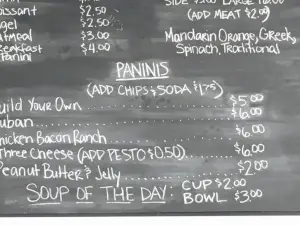 SIDE $3.00 LARGE
issant $2.50
(ADD MEAT $2.00)
gel $2.50
atmeal $3.00
Mandarin Orange, Greek,
eakfast $4.00
Spinach, Traditional
Panini
PANINIS
(ADD CHIPS & SODA $1.75)
uild Your Own $5.00
uban $6.00
hicken Bacon Ranch $6.00
Three Cheese (ADD PESTO $0.50) $6.00
Peanut Butter & Jelly $2.00
SOUP OF THE DAY: CUP $2.00
BOWL $3.00